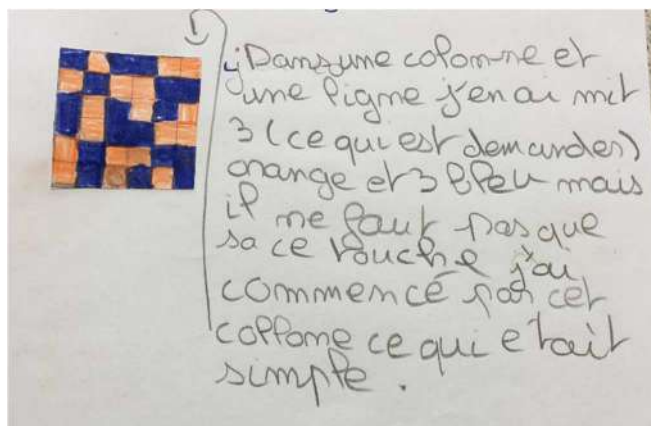 Dans une colonne et
une ligne j'en ai mit
3 (ce qui est demander)
orange et 3 bleu mais
il ne faut pas que
sa ce touche j'ai
commencé par cet
collone ce qui etait
simple.